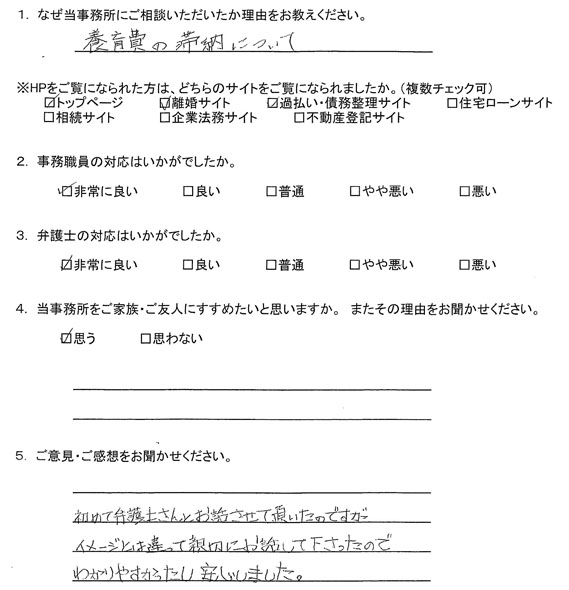 1. なぜ当事務所にご相談いただいたか理由をお教えください。
養育費の滞納について
※HPをご覧になられた方は、どちらのサイトをご覧になられましたか。(複数チェック可)
☑トップページ ☑離婚サイト ☑過払い・債務整理サイト □住宅ローンサイト
□相続サイト □企業法務サイト □不動産登記サイト
2. 事務職員の対応はいかがでしたか。
☑非常に良い □良い □普通 □やや悪い □悪い
3. 弁護士の対応はいかがでしたか。
☑非常に良い □良い □普通 □やや悪い □悪い
4. 当事務所をご家族・ご友人にすすめたいと思いますか。 またその理由をお聞かせください。
☑思う □思わない
5. ご意見・ご感想をお聞かせください。
初めて弁護士さんとお話させて頂いたのですが
イメージとは違って親切にお話して下さったので
わかりやすかったし 安心しました。